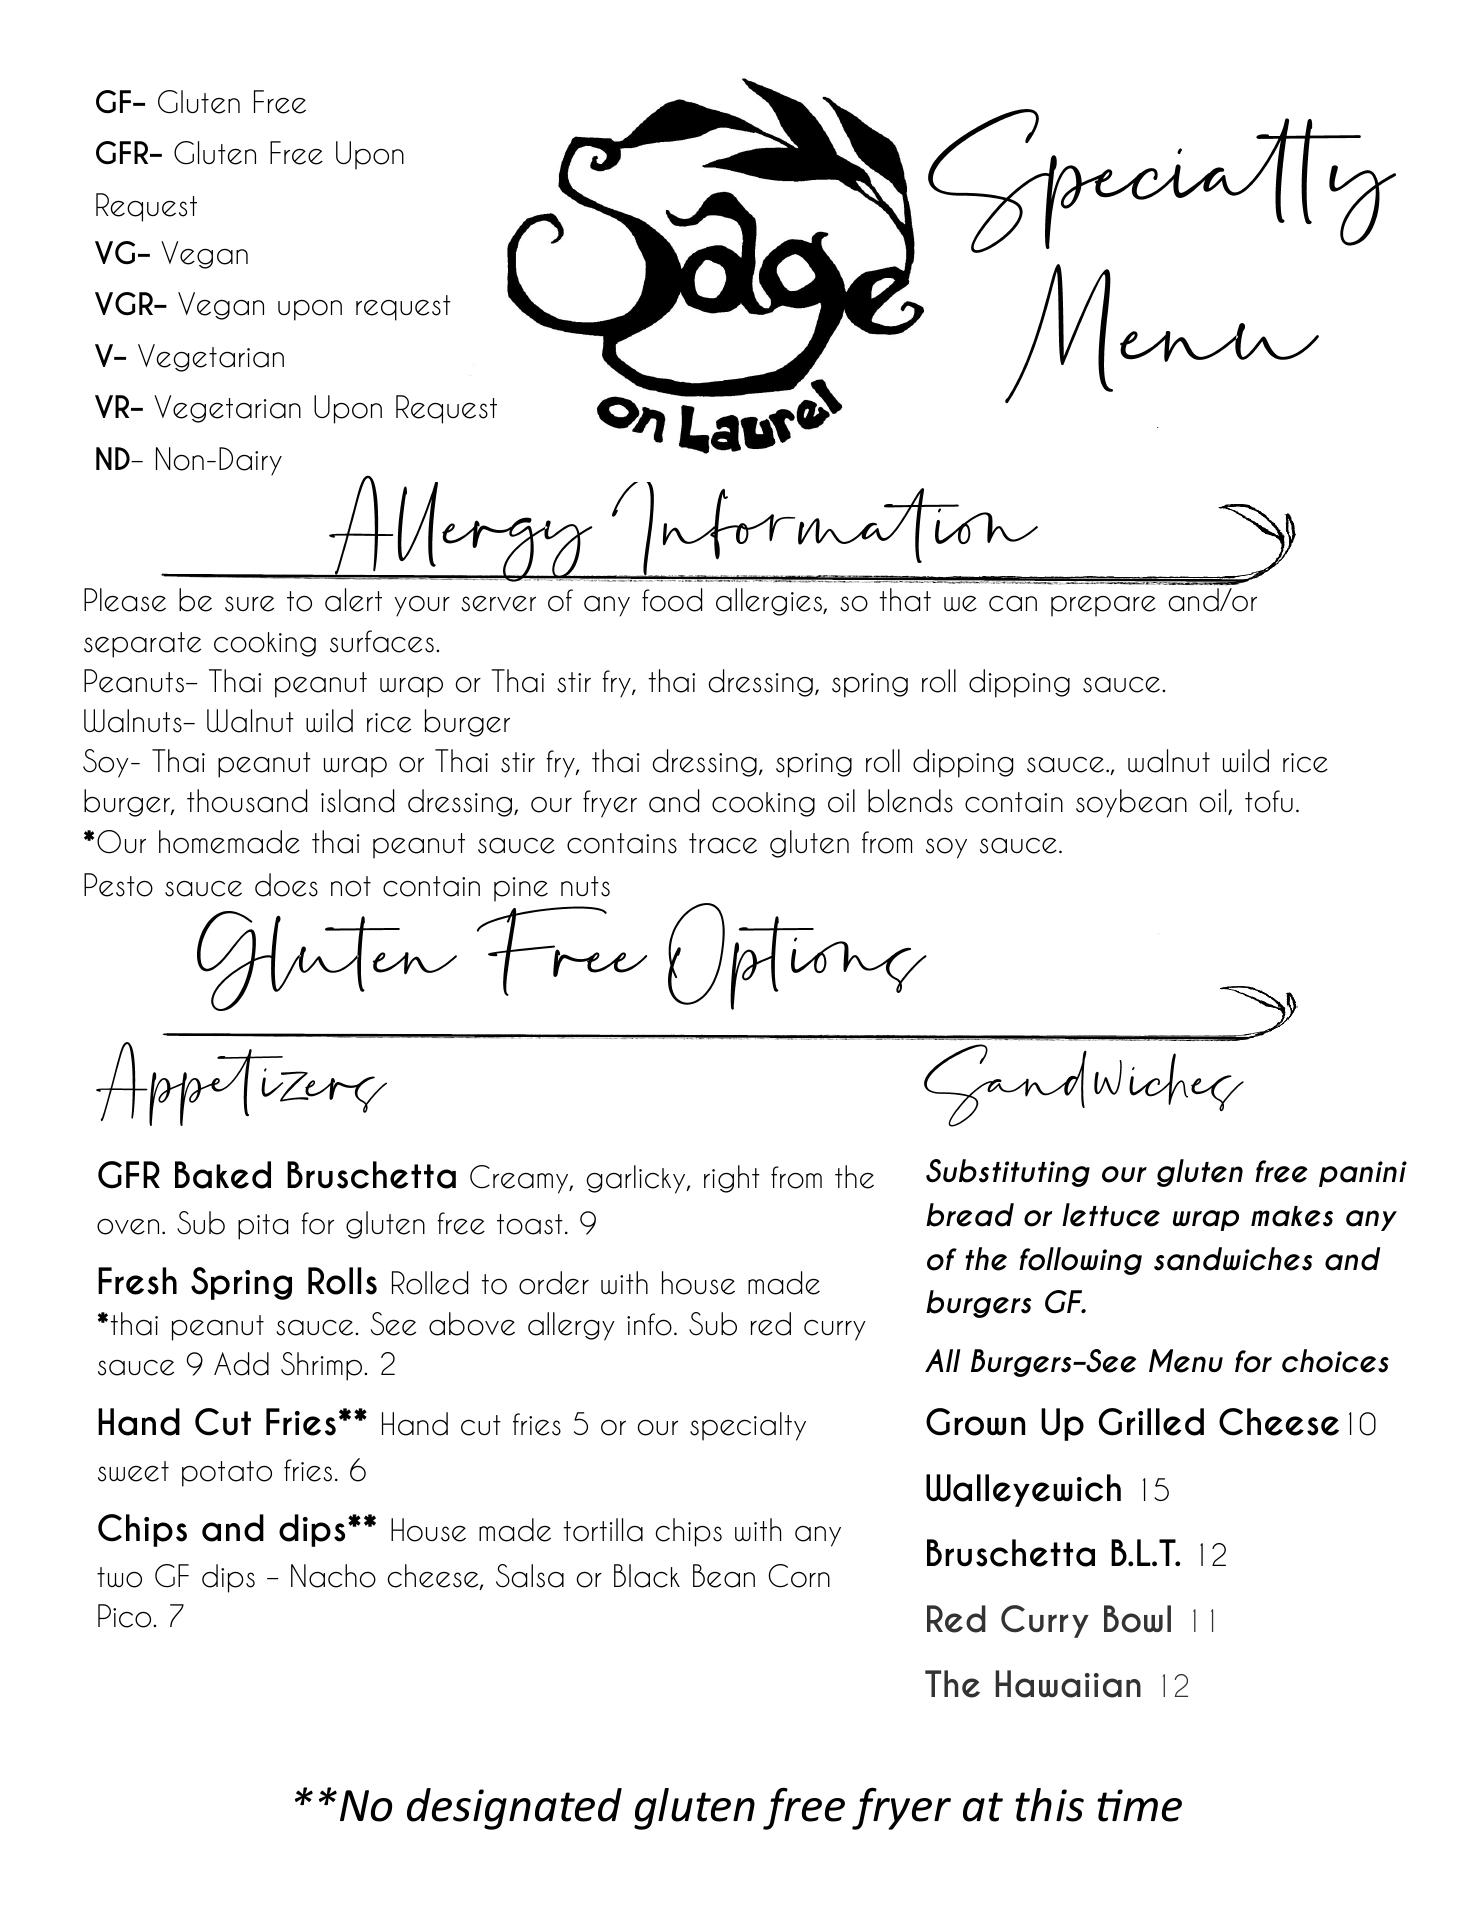 GF- Gluten Free
GFR- Gluten Free Upon
Request
VG- Vegan
VGR- Vegan upon request
V- Vegetarian
VR- Vegetarian Upon Request
ND- Non-Dairy
Sage
on Laurel
Specialty
Menu
Allergy Information
Please be sure to alert your server of any food allergies, so that we can prepare and/or
separate cooking surfaces.
Peanuts- Thai peanut wrap or Thai stir fry, thai dressing, spring roll dipping sauce.
Walnuts- Walnut wild rice burger
Soy- Thai peanut wrap or Thai stir fry, thai dressing, spring roll dipping sauce., walnut wild rice
burger, thousand island dressing, our fryer and cooking oil blends contain soybean oil, tofu.
*Our homemade thai peanut sauce contains trace gluten from soy sauce.
Pesto sauce does not contain pine nuts
Gluten Free Options
Appetizers
GFR Baked Bruschetta Creamy, garlicky, right from the
oven. Sub pita for gluten free toast. 9
Fresh Spring Rolls Rolled to order with house made
*thai peanut sauce. See above allergy info. Sub red curry
sauce 9 Add Shrimp. 2
Hand Cut Fries** Hand cut fries 5 or our specialty
sweet potato fries. 6
Chips and dips** House made tortilla chips with any
two GF dips - Nacho cheese, Salsa or Black Bean Corn
Pico. 7
Sandwiches
Substituting our gluten free panini
bread or lettuce wrap makes any
of the following sandwiches and
burgers GF.
All Burgers-See Menu for choices
Grown Up Grilled Cheese10
Walleyewich 15
Bruschetta B.L.T. 12
Red Curry Bowl 11
The Hawaiian 12
**No designated gluten free fryer at this time